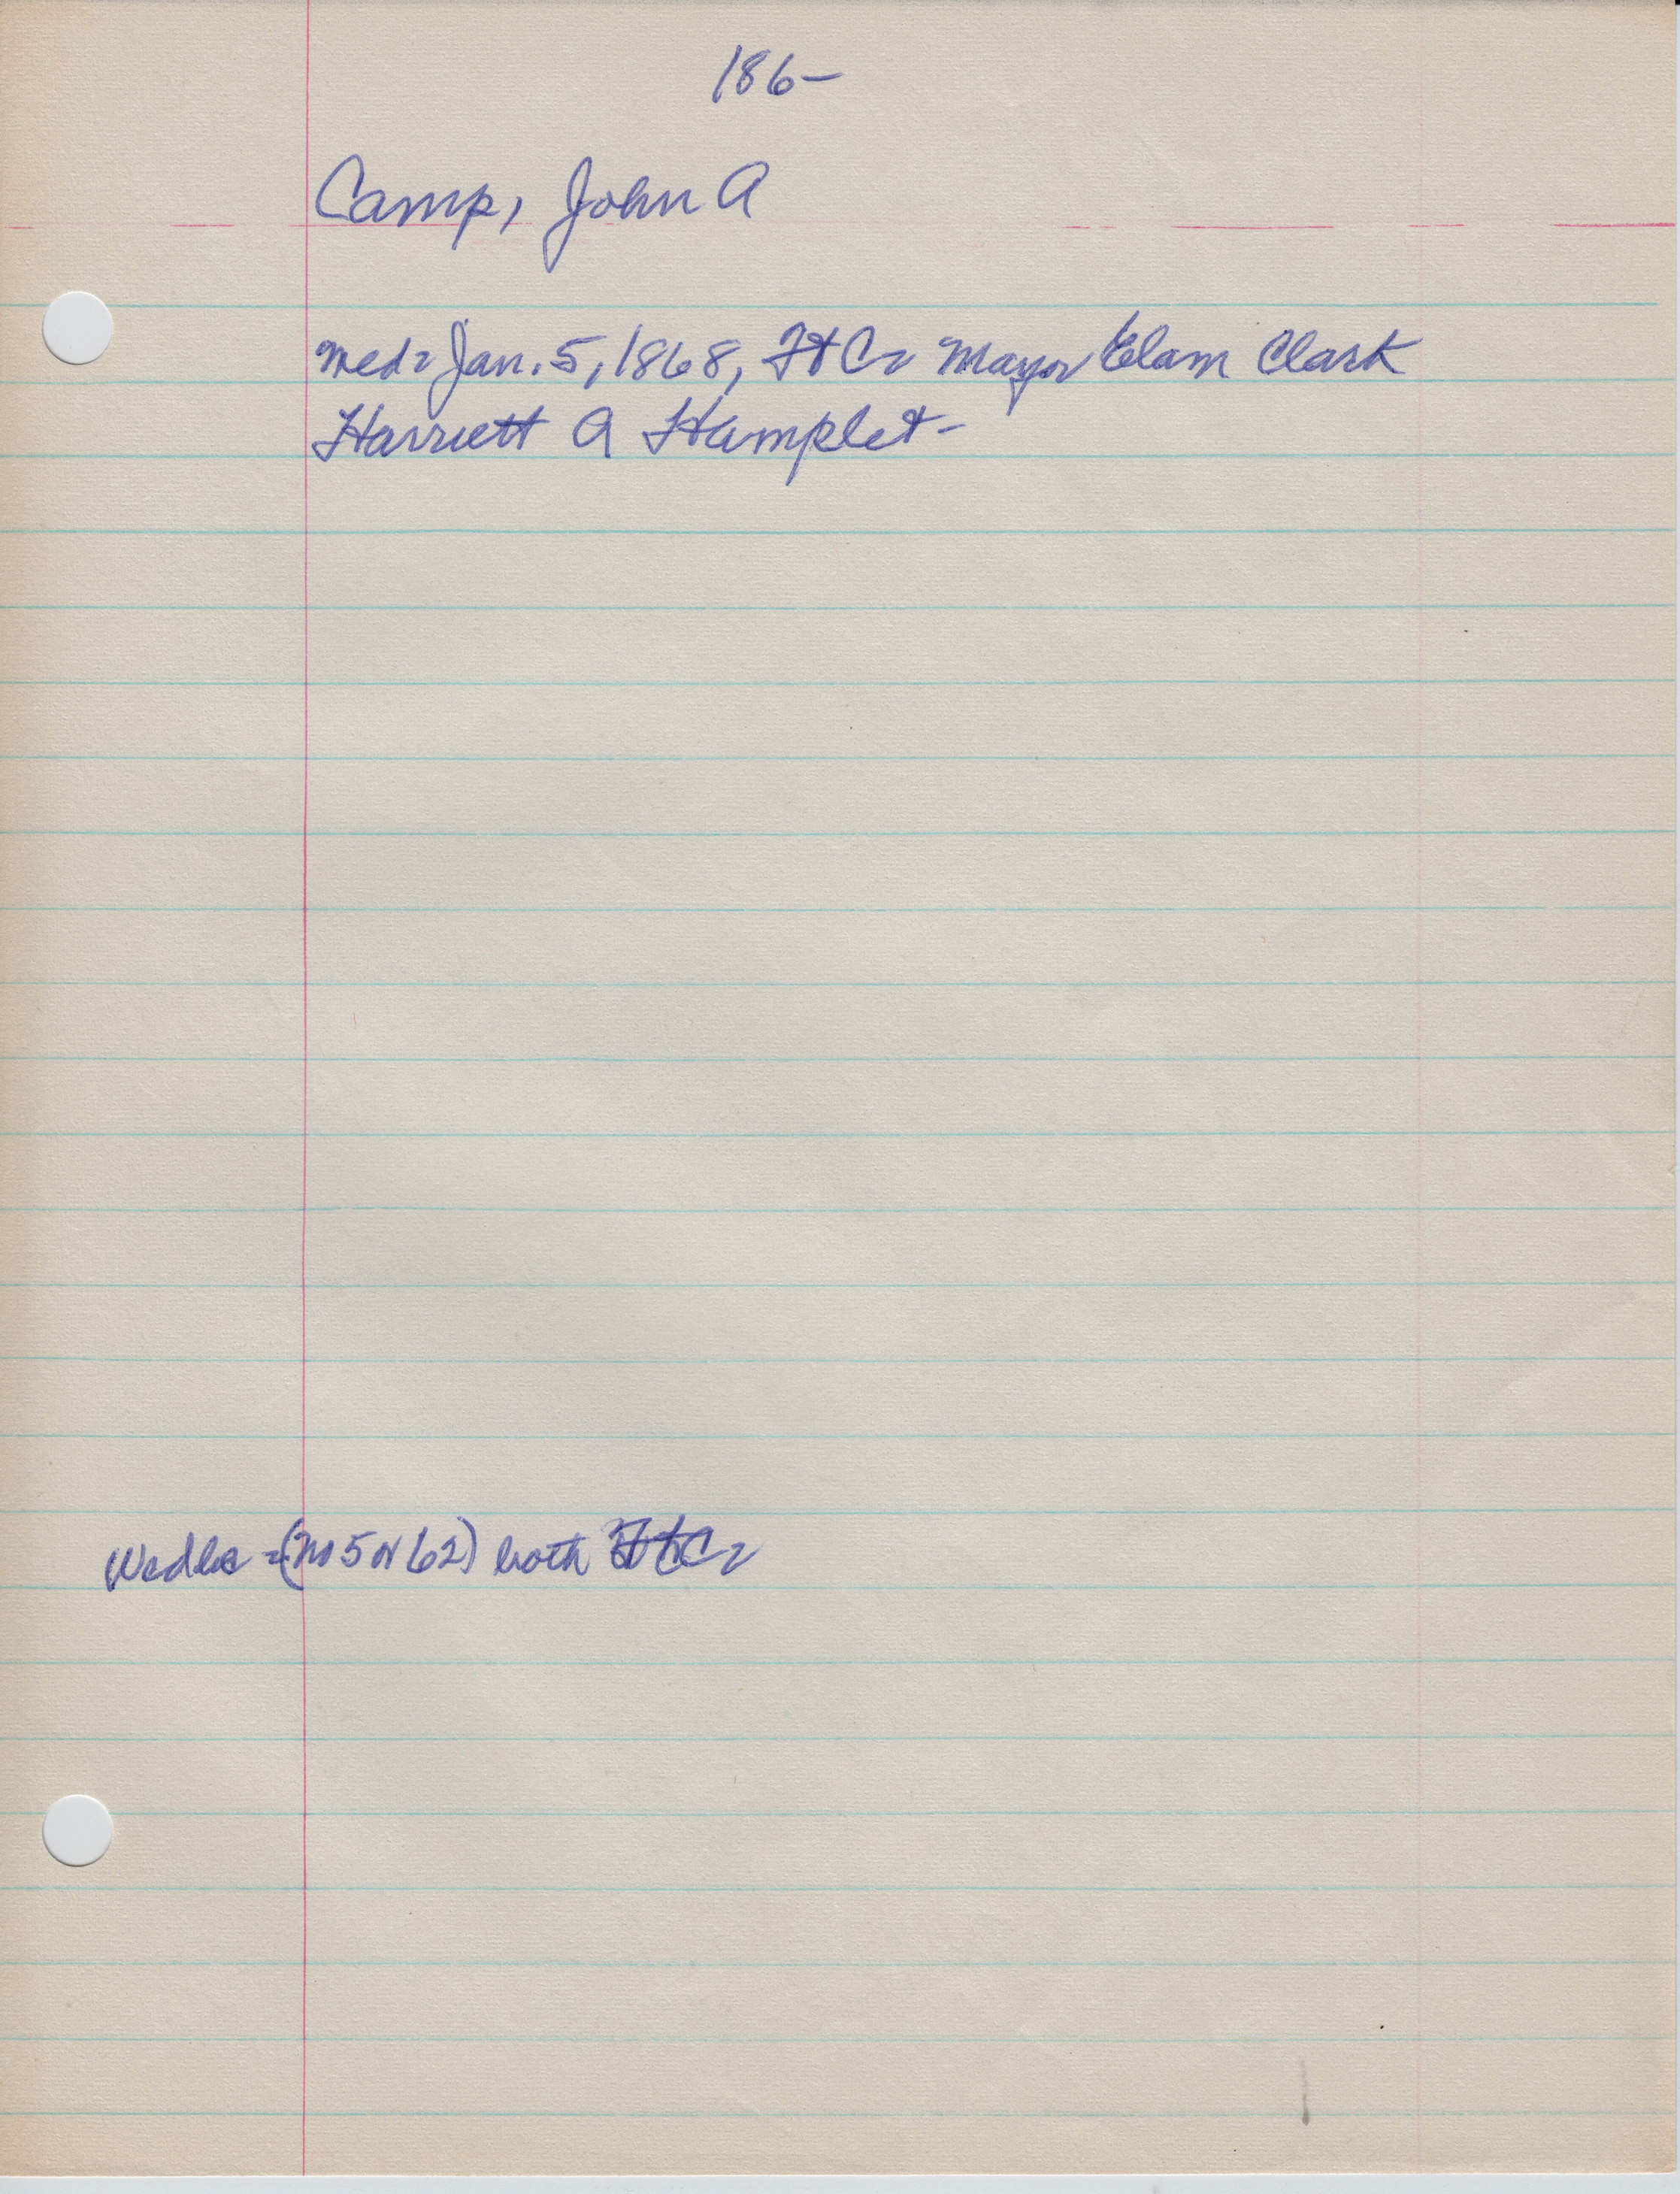 186-
Camp, John A
Med= Jan. 5, 1868, Ft C= Mayor Elam Clark
Harriett A Hamplet-
(No 5 or 62) both Ft C=